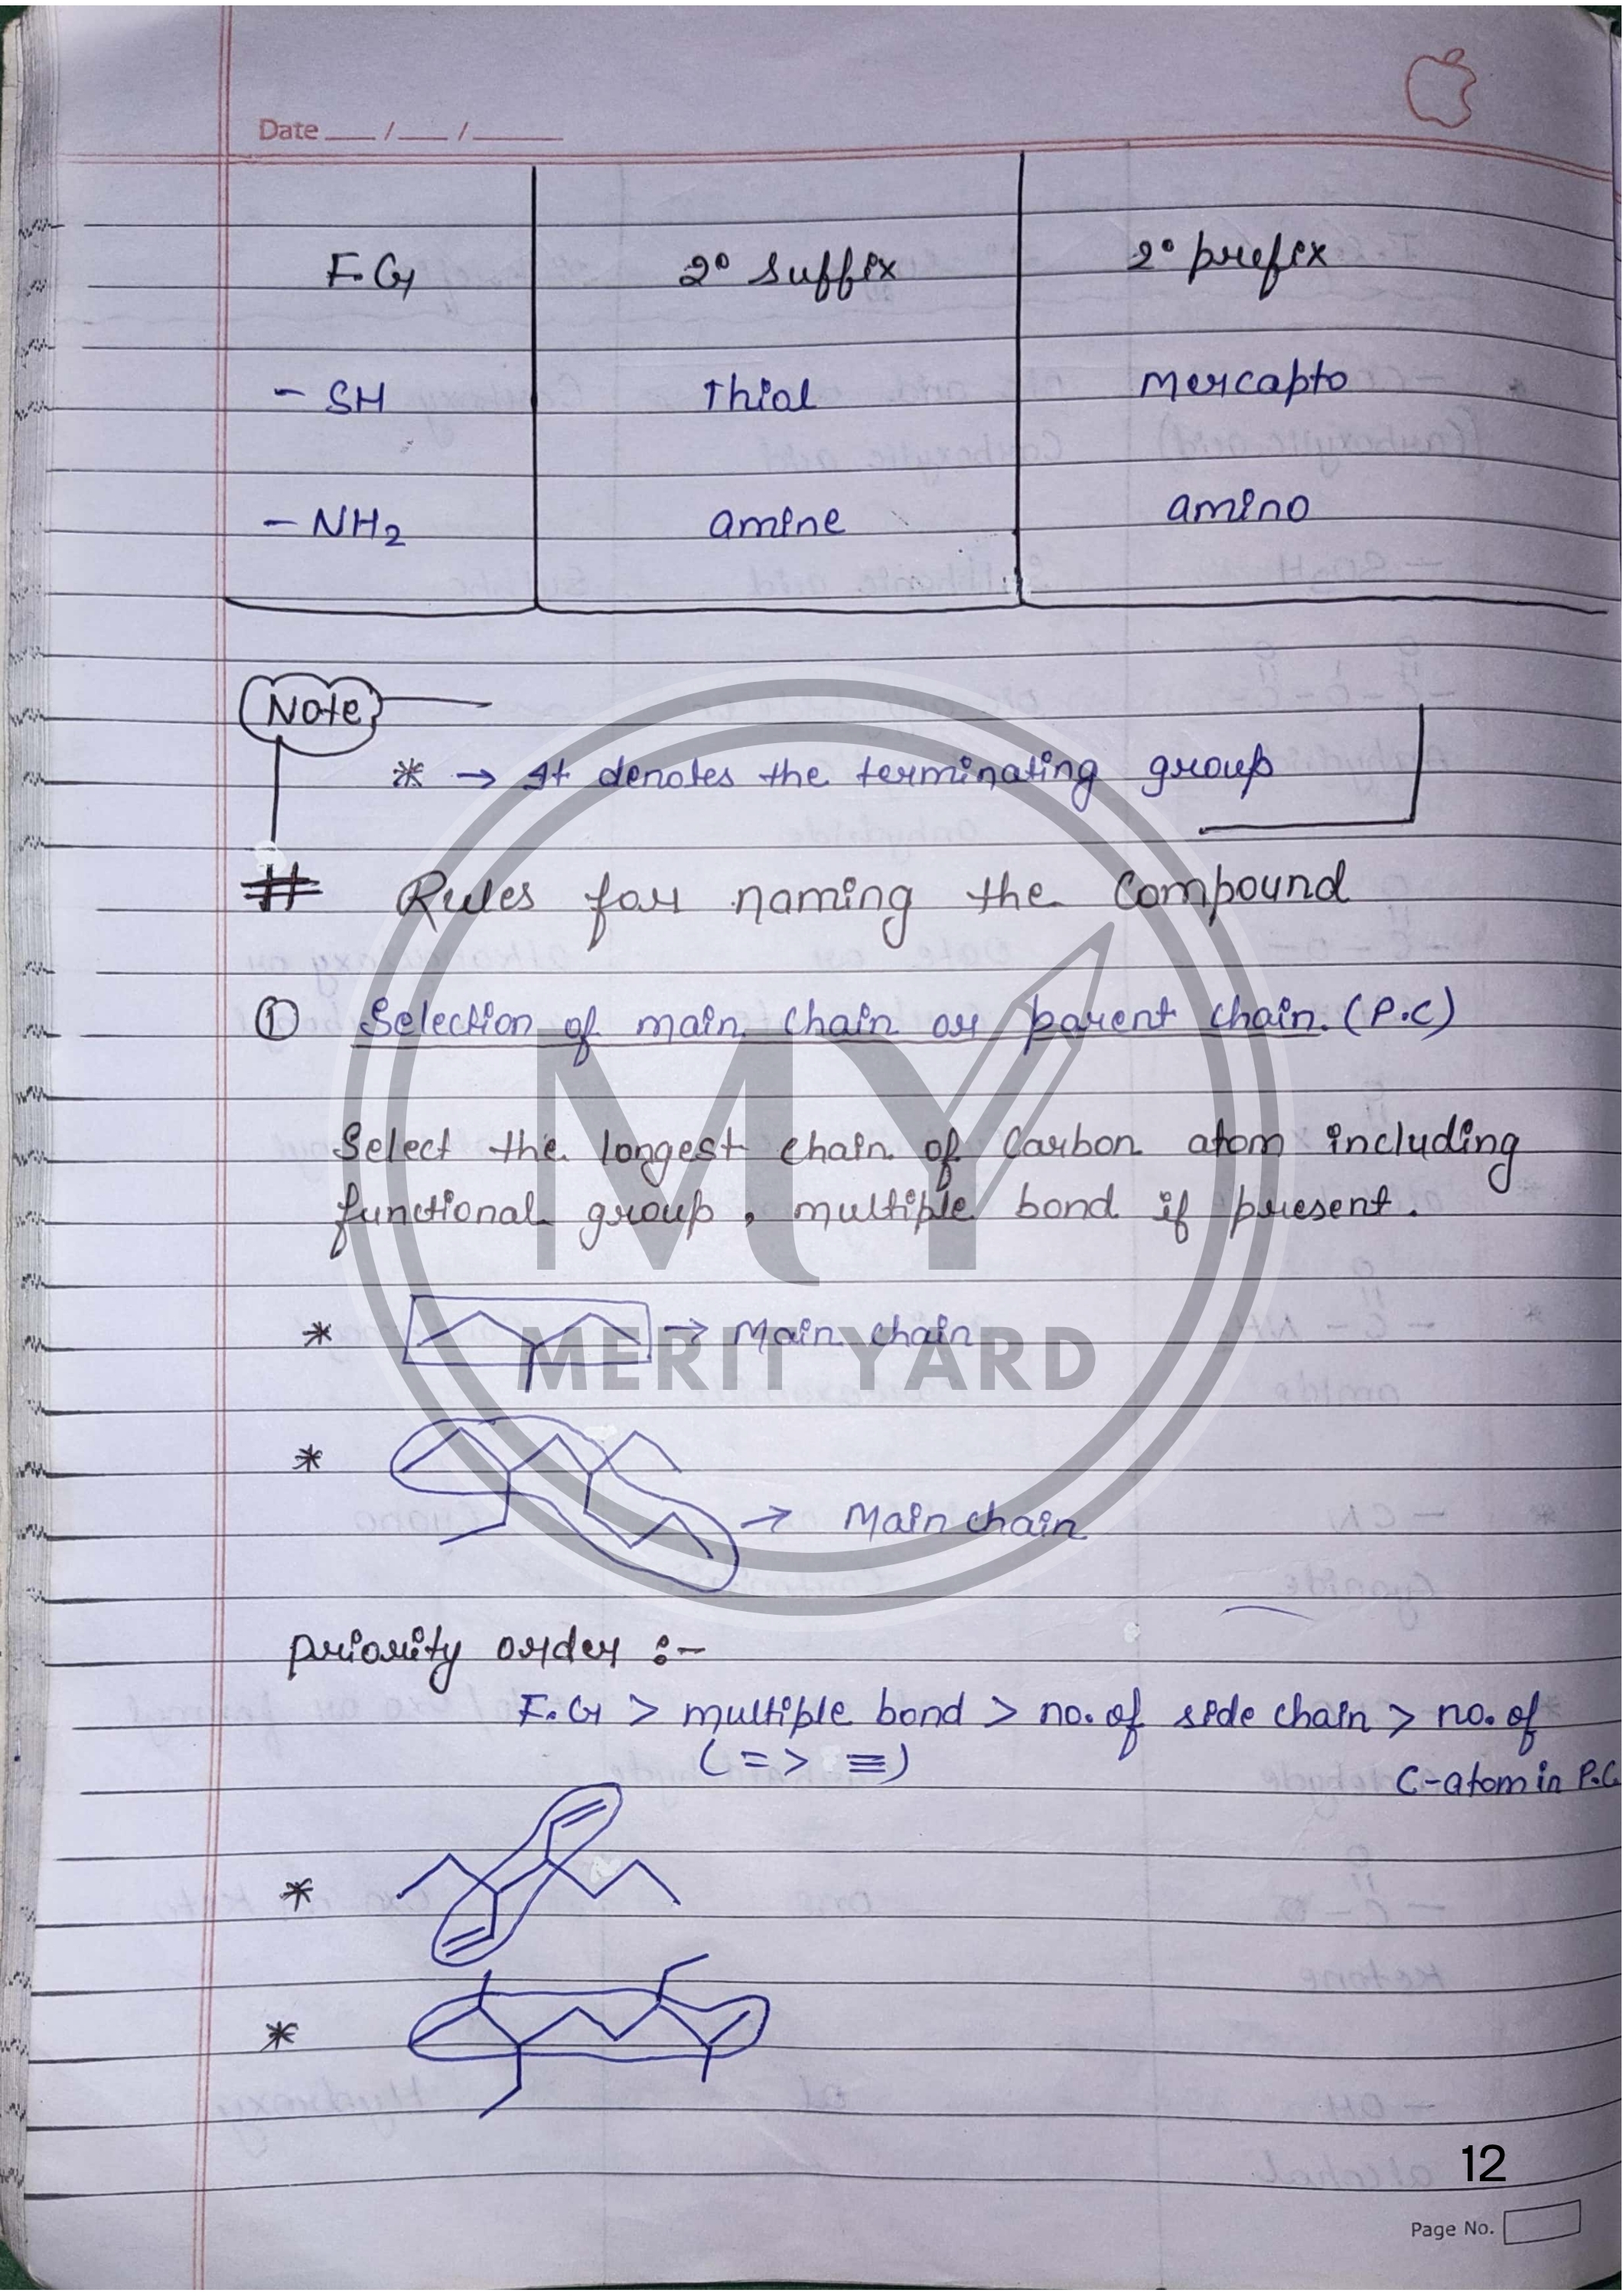 Date ___/___/_____
F.G 2° suffix 2° prefix
- SH Thiol Mercapto
- NH2 amine amino
Note
* → It denotes the terminating group
# Rules for naming the Compound
① Selection of main chain or parent chain. (P.C)
Select the longest chain of Carbon atom including
functional group, multiple bond if present.
* → Main chain
MERIT YARD
MY
* → Main chain
priority order :-
F.G > multiple bond > no. of side chain > no. of
(= > ≡)
C-atom in P.C
*
*
12
Page No.